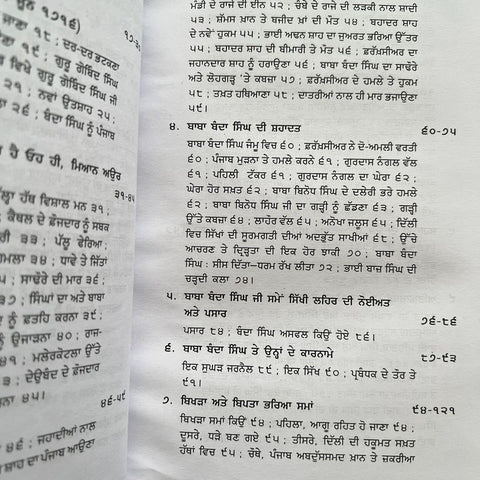 ਜੂਨ ੧੭੧੬)
੧੭-੩੦
ਜਾਣਾ ੧੮ ; ਦਰ-ਦਰ ਭਟਕਣਾ
੧੯ ; ਗੁਰੂ ਗੋਬਿੰਦ ਸਿੰਘ
ਵਿਖੇ ਗੁਰੂ ਗੋਬਿੰਦ ਸਿੰਘ ਜੀ
੨੧ ; ਨਵਾਂ ਉਤਸ਼ਾਹ ੨੫ ;
; ਬੰਦਾ ਸਿੰਘ ਨੂੰ ਪੰਜਾਬ
ਹੈ ਓਹ ਹੀ, ਮਿਆਨ ਅਉਰ
੩੧-੪੫
ਹੱਥ ਵਿਸ਼ਾਲ ਮਨ ੩੧ ;
ਕੈਥਲ ਦੇ ਫ਼ੌਜਦਾਰ ਨੂੰ ਸਬਕ
੩੩ ; ਪੱਲੂ ਵੇਰਿਆ ;
੩੪ ; ਧਾਵੇ ਤੇ ਜਿੱਤਾਂ
; ਸਾਢੌਰੇ ਦੀ ਮਾਰ ੩੬ ;
੩੭ ; ਸਿੰਘਾਂ ਦਾ ਅਤੇ ਬਾਬਾ
ਨੂੰ ਫ਼ਤਹਿ ਕਰਨਾ ੩੯ ;
ਨੂੰ ਉਜਾੜਨਾ ੪੦ ; ਰਾਜ-
੪੧ ; ਮਲੇਰਕੋਟਲਾ ਉੱਤੇ
; ਦੇਉਬੰਦ ਦੇ ਫ਼ੌਜਦਾਰ
੪੫ ।
੪੬-੫੯
੪੬ ; ਜਹਾਦੀਆਂ ਨਾਲ
ਸ਼ਾਹ ਦਾ ਪੰਜਾਬ ਆਉਣਾ
ਮੰਡੀ ਦੇ ਰਾਜੇ ਦੀ ਈਨ ੫੨ ; ਚੰਬੇ ਦੇ ਰਾਜੇ ਦੀ ਲੜਕੀ ਨਾਲ ਸ਼ਾਦੀ
੫੩ ; ਸ਼ੱਮਸ ਖ਼ਾਨ ਤੇ ਬਜੀਦ ਖ਼ਾਂ ਦੀ ਮੌਤ ੫੪ ; ਬਹਾਦਰ ਸ਼ਾਹ
ਦੇ ਨਵੇਂ ਹੁਕਮ ੫੫ ; ਭਾਈ ਅਢਨ ਸ਼ਾਹ ਦਾ ਜੁਅਰਤ ਭਰਿਆ ਉੱਤਰ
੫੫ ; ਬਹਾਦਰ ਸ਼ਾਹ ਦੀ ਬੀਮਾਰੀ ਤੇ ਮੌਤ ੫੬ ; ਫ਼ਰੱਖ਼ਸਿਅਰ ਦਾ
ਜਹਾਨਦਾਰ ਸ਼ਾਹ ਨੂੰ ਹਰਾਉਣਾ ੫੬ ; ਬਾਬਾ ਬੰਦਾ ਸਿੰਘ ਦਾ ਸਾਢੌਰੇ
ਅਤੇ ਲੋਹਗੜ੍ਹ 'ਤੇ ਕਬਜ਼ਾ ੫੭ ; ਫ਼ਰੱਖ਼ਸਿਅਰ ਦੇ ਹਮਲੇ ਤੇ ਹੁਕਮ
੫੮ ; ਤਖ਼ਤ ਹਥਿਆਣਾ ੫੮ ; ਦਾਤਰੀਆਂ ਨਾਲ ਹੀ ਮਾਰ ਭਜਾਉਣਾ
੫੯ ।
੪. ਬਾਬਾ ਬੰਦਾ ਸਿੰਘ ਦੀ ਸ਼ਹਾਦਤ ੬੦-੭੫
ਬਾਬਾ ਬੰਦਾ ਸਿੰਘ ਜੰਮੂ ਵਿਚ ੬੦ ; ਫ਼ਰੱਖ਼ਸਿਅਰ ਨੇ ਦੋ-ਅਮਲੀ ਵਰਤੀ
੬੦ ; ਪੰਜਾਬ ਮੁੜਨਾ ਤੇ ਹਮਲੇ ਕਰਨੇ ੬੧ ; ਗੁਰਦਾਸ ਨੰਗਲ ਵੱਲ
੬੧ ; ਪਹਿਲੀ ਟੱਕਰ ੬੧ ; ਗੁਰਦਾਸ ਨੰਗਲ ਦਾ ਘੇਰਾ ੬੨ ;
ਘੇਰਾ ਹੋਰ ਸਖ਼ਤ ੬੨ ; ਬਾਬਾ ਬਿਨੋਧ ਸਿੰਘ ਦੇ ਦਲੇਰੀ ਭਰੇ ਹਮਲੇ
੬੨ ; ਬਾਬਾ ਬਿਨੋਧ ਸਿੰਘ ਜੀ ਦਾ ਗੜ੍ਹੀ ਨੂੰ ਛੱਡਣਾ ੬੩ ; ਗੜ੍ਹੀ
ਉੱਤੇ ਕਬਜ਼ਾ ੬੪ ; ਲਾਹੌਰ ਵੱਲ ੬੫ ; ਅਨੋਖਾ ਜਲੂਸ ੬੫ ; ਦਿੱਲੀ
ਵਿਚ ਸਿੱਖੀ ਦੀ ਸੂਰਮਗਤੀ ਦੀਆਂ ਅਦਭੁੱਤ ਸਾਖੀਆਂ ੬੮ ; ਉੱਚੇ
ਆਚਰਣ ਤੇ ਦ੍ਰਿੜ੍ਹਤਾ ਦੀ ਇਕ ਹੋਰ ਝਾਕੀ ੭੦ ; ਬਾਬਾ ਬੰਦਾ
ਸਿੰਘ : ਸੀਸ ਦਿੱਤਾ-ਧਰਮ ਰੱਖ ਲੀਤਾ ੭੨ ; ਭਾਈ ਬਾਜ ਸਿੰਘ ਦੀ
ਚੜ੍ਹਦੀ ਕਲਾ ੭੪ ।
੫. ਬਾਬਾ ਬੰਦਾ ਸਿੰਘ ਜੀ ਸਮੇਂ ਸਿੱਖੀ ਲਹਿਰ ਦੀ ਨੋਈਅਤ
ਅਤੇ ਪਸਾਰ ੭੬-੮੬
ਪਸਾਰ ੮੪ ; ਬੰਦਾ ਸਿੰਘ ਅਸਫਲ ਕਿਉਂ ਹੋਏ ੮੬ ।
੬. ਬਾਬਾ ਬੰਦਾ ਸਿੰਘ ਤੇ ਉਨ੍ਹਾਂ ਦੇ ਕਾਰਨਾਮੇ ੮੭-੯੩
ਇਕ ਸੁਘੜ ਜਰਨੈਲ ੮੯ ; ਇਕ ਸਿੱਖ ੯੦ ; ਪ੍ਰਬੰਧਕ ਦੇ ਤੌਰ ਤੇ
੯੧ ।
੭. ਬਿਖੜਾ ਅਤੇ ਬਿਪਤਾ ਭਰਿਆ ਸਮਾਂ ੯੪-੧੨੧
ਬਿਖੜਾ ਸਮਾਂ ਕਿਉਂ ੯੪ ; ਪਹਿਲਾ, ਆਗੂ ਰਹਿਤ ਹੋ ਜਾਣਾ ੯੪ ;
ਦੂਸਰੇ, ਧੜੇ ਬਣ ਗਏ ੯੫ ; ਤੀਸਰੇ, ਦਿੱਲੀ ਦੀ ਹਕੂਮਤ ਸਖ਼ਤ
ਹੱਥਾਂ ਵਿਚ ੯੫ ; ਚੌਥੇ, ਪੰਜਾਬ ਅਬਦੁੱਸਸਮਦ ਖ਼ਾਨ ਤੇ ਜ਼ਕਰੀਆ